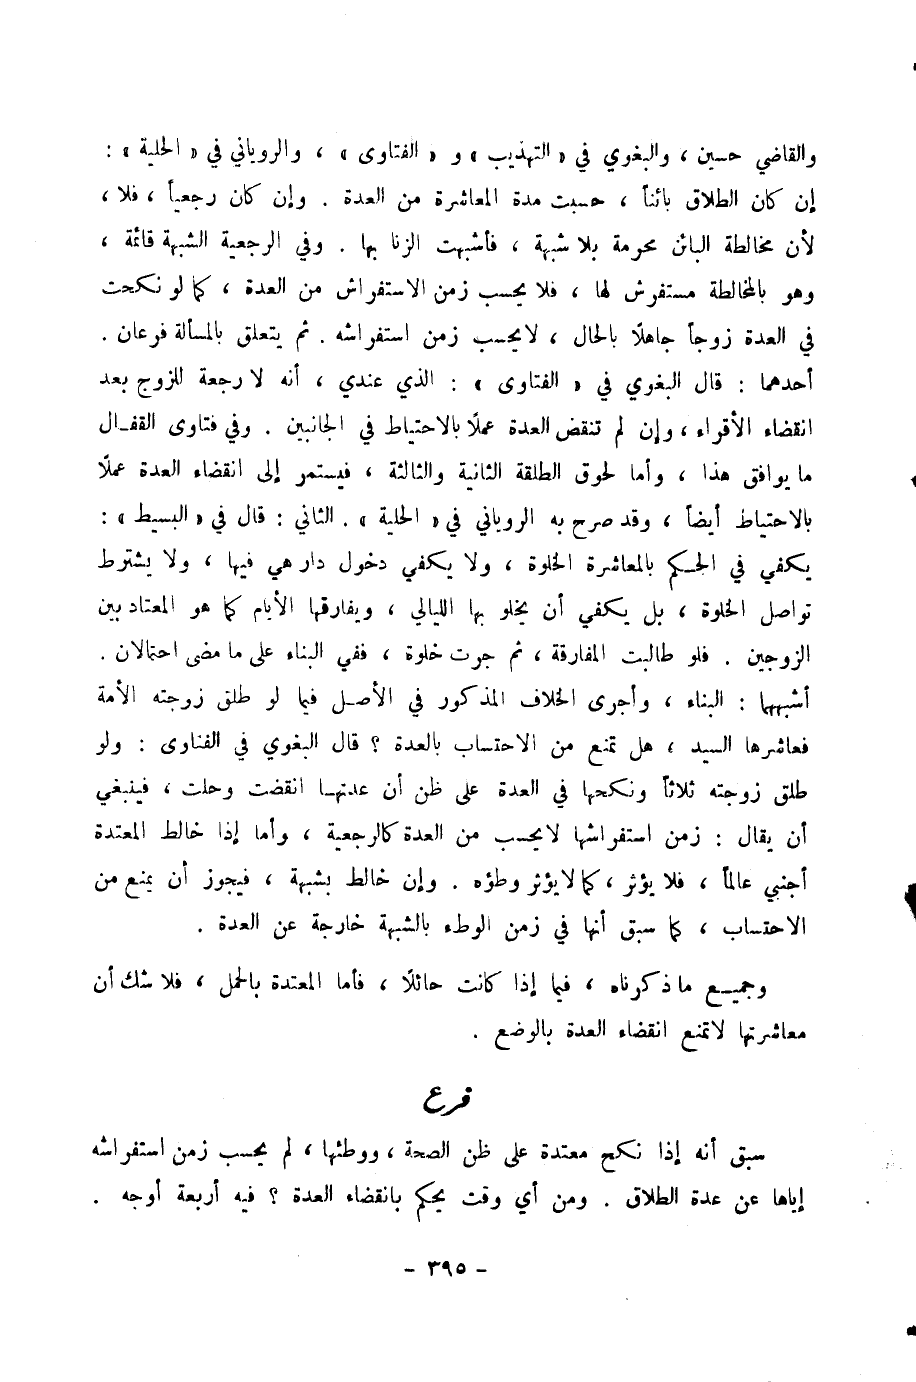 والقاضي حسين ، والبغوي في « التهذيب » و « الفتاوى » ، والروياني في « الحلية » :
إن كان الطلاق بائناً ، حسبت مدة المعاشرة من العدة . وإن كان رجعياً ، فلا ،
لأن مخالطة البائن محرمة بلا شبهة ، فأشبهت الزنا بها . وفي الرجعية الشبهة قائمة ،
وهو بالمخالطة مستفرش لها ، فلا يحسب زمن الاستفراش من العدة ، كما لو نكحت
في العدة زوجاً جاهلاً بالحال ، لايحسب زمن استفراشه . ثم يتعلق بالمسألة فرعان .
أحدهما : قال البغوي في « الفتاوى » : الذي عندي ، أنه لا رجعة للزوج بعد
انقضاء الأقراء ، وإن لم تنقض العدة عملاً بالاحتياط في الجانبين . وفي فتاوى القفـال
ما يوافق هذا ، وأما لحوق الطلقة الثانية والثالثة ، فيستمر إلى انقضاء العدة عملاً
بالاحتياط أيضاً ، وقد صرح به الروياني في « الحلية » . الثاني : قال في « البسيط » :
يكفي في الحـكم بالمعاشرة الخلوة ، ولا يكفي دخول دار هي فيها ، ولا يشترط
تواصل الخلوة ، بل يكفي أن يخلو بها الليالي ، ويفارقها الأيام كما هو المعتاد بين
الزوجين . فلو طالبت المفارقة ، ثم جرت خلوة ، ففي البناء على ما مضى احتمالان .
أشبهها : البناء ، وأجرى الخلاف المذكور في الأصـل فيما لو طلق زوجته الأمة
فعاشرها السيد ، هل تمنع من الاحتساب بالعدة ؟ قال البغوي في الفتاوى : ولو
طلق زوجته ثلاثاً ونكحها في العدة على ظن أن عدتهـا انقضت وحلت ، فينبغي
أن يقال : زمن استفراشها لايحسب من العدة كالرجعية ، وأما إذا خالط المعتدة
أجنبي عالماً ، فلا يؤثر ، كما لا يؤثر وطؤه . وإن خالط بشبهة ، فيجوز أن يمنع من
الاحتساب ، كما سبق أنها في زمن الوطء بالشبهة خارجة عن العدة .
وجميـع ما ذكرناه ، فيما إذا كانت حائلاً ، فأما المعتدة بالحمل ، فلا شك أن
معاشرتها لاتمنع انقضاء العدة بالوضع .
فرع
سبق أنه إذا نكح معتدة على ظن الصحة ، ووطئها ، لم يحسب زمن استفراشه
إياها عن عدة الطلاق . ومن أي وقت يحكم بانقضاء العدة ؟ فيه أربعة أوجه .
- ٣٩٥ -